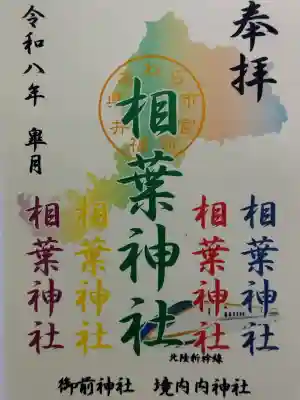 奉拝
相葉神社
相葉神社
相葉神社
相葉神社
相葉神社
令和八年 皐月
北陸新幹線
御前神社 境内内神社